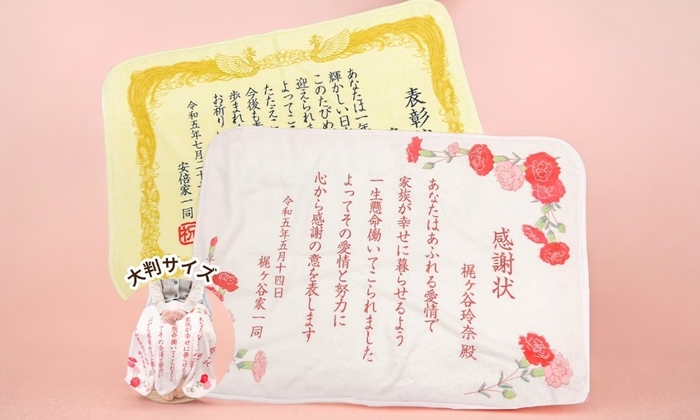 表彰
あなたは一年
輝かしい日
このたびめ
迎えられま
よってここ
たたえこ
今後も
歩まれ
お祈り
令和五年七月二十
安倍家一同
祝
感謝状
梶ヶ谷玲奈 殿
あなたはあふれる愛情で
家族が幸せに暮らせるよう
一生懸命働いてこられました
よってその愛情と努力に
心から感謝の意を表します
令和五年五月十四日
梶ヶ谷家一同
大判サイズ